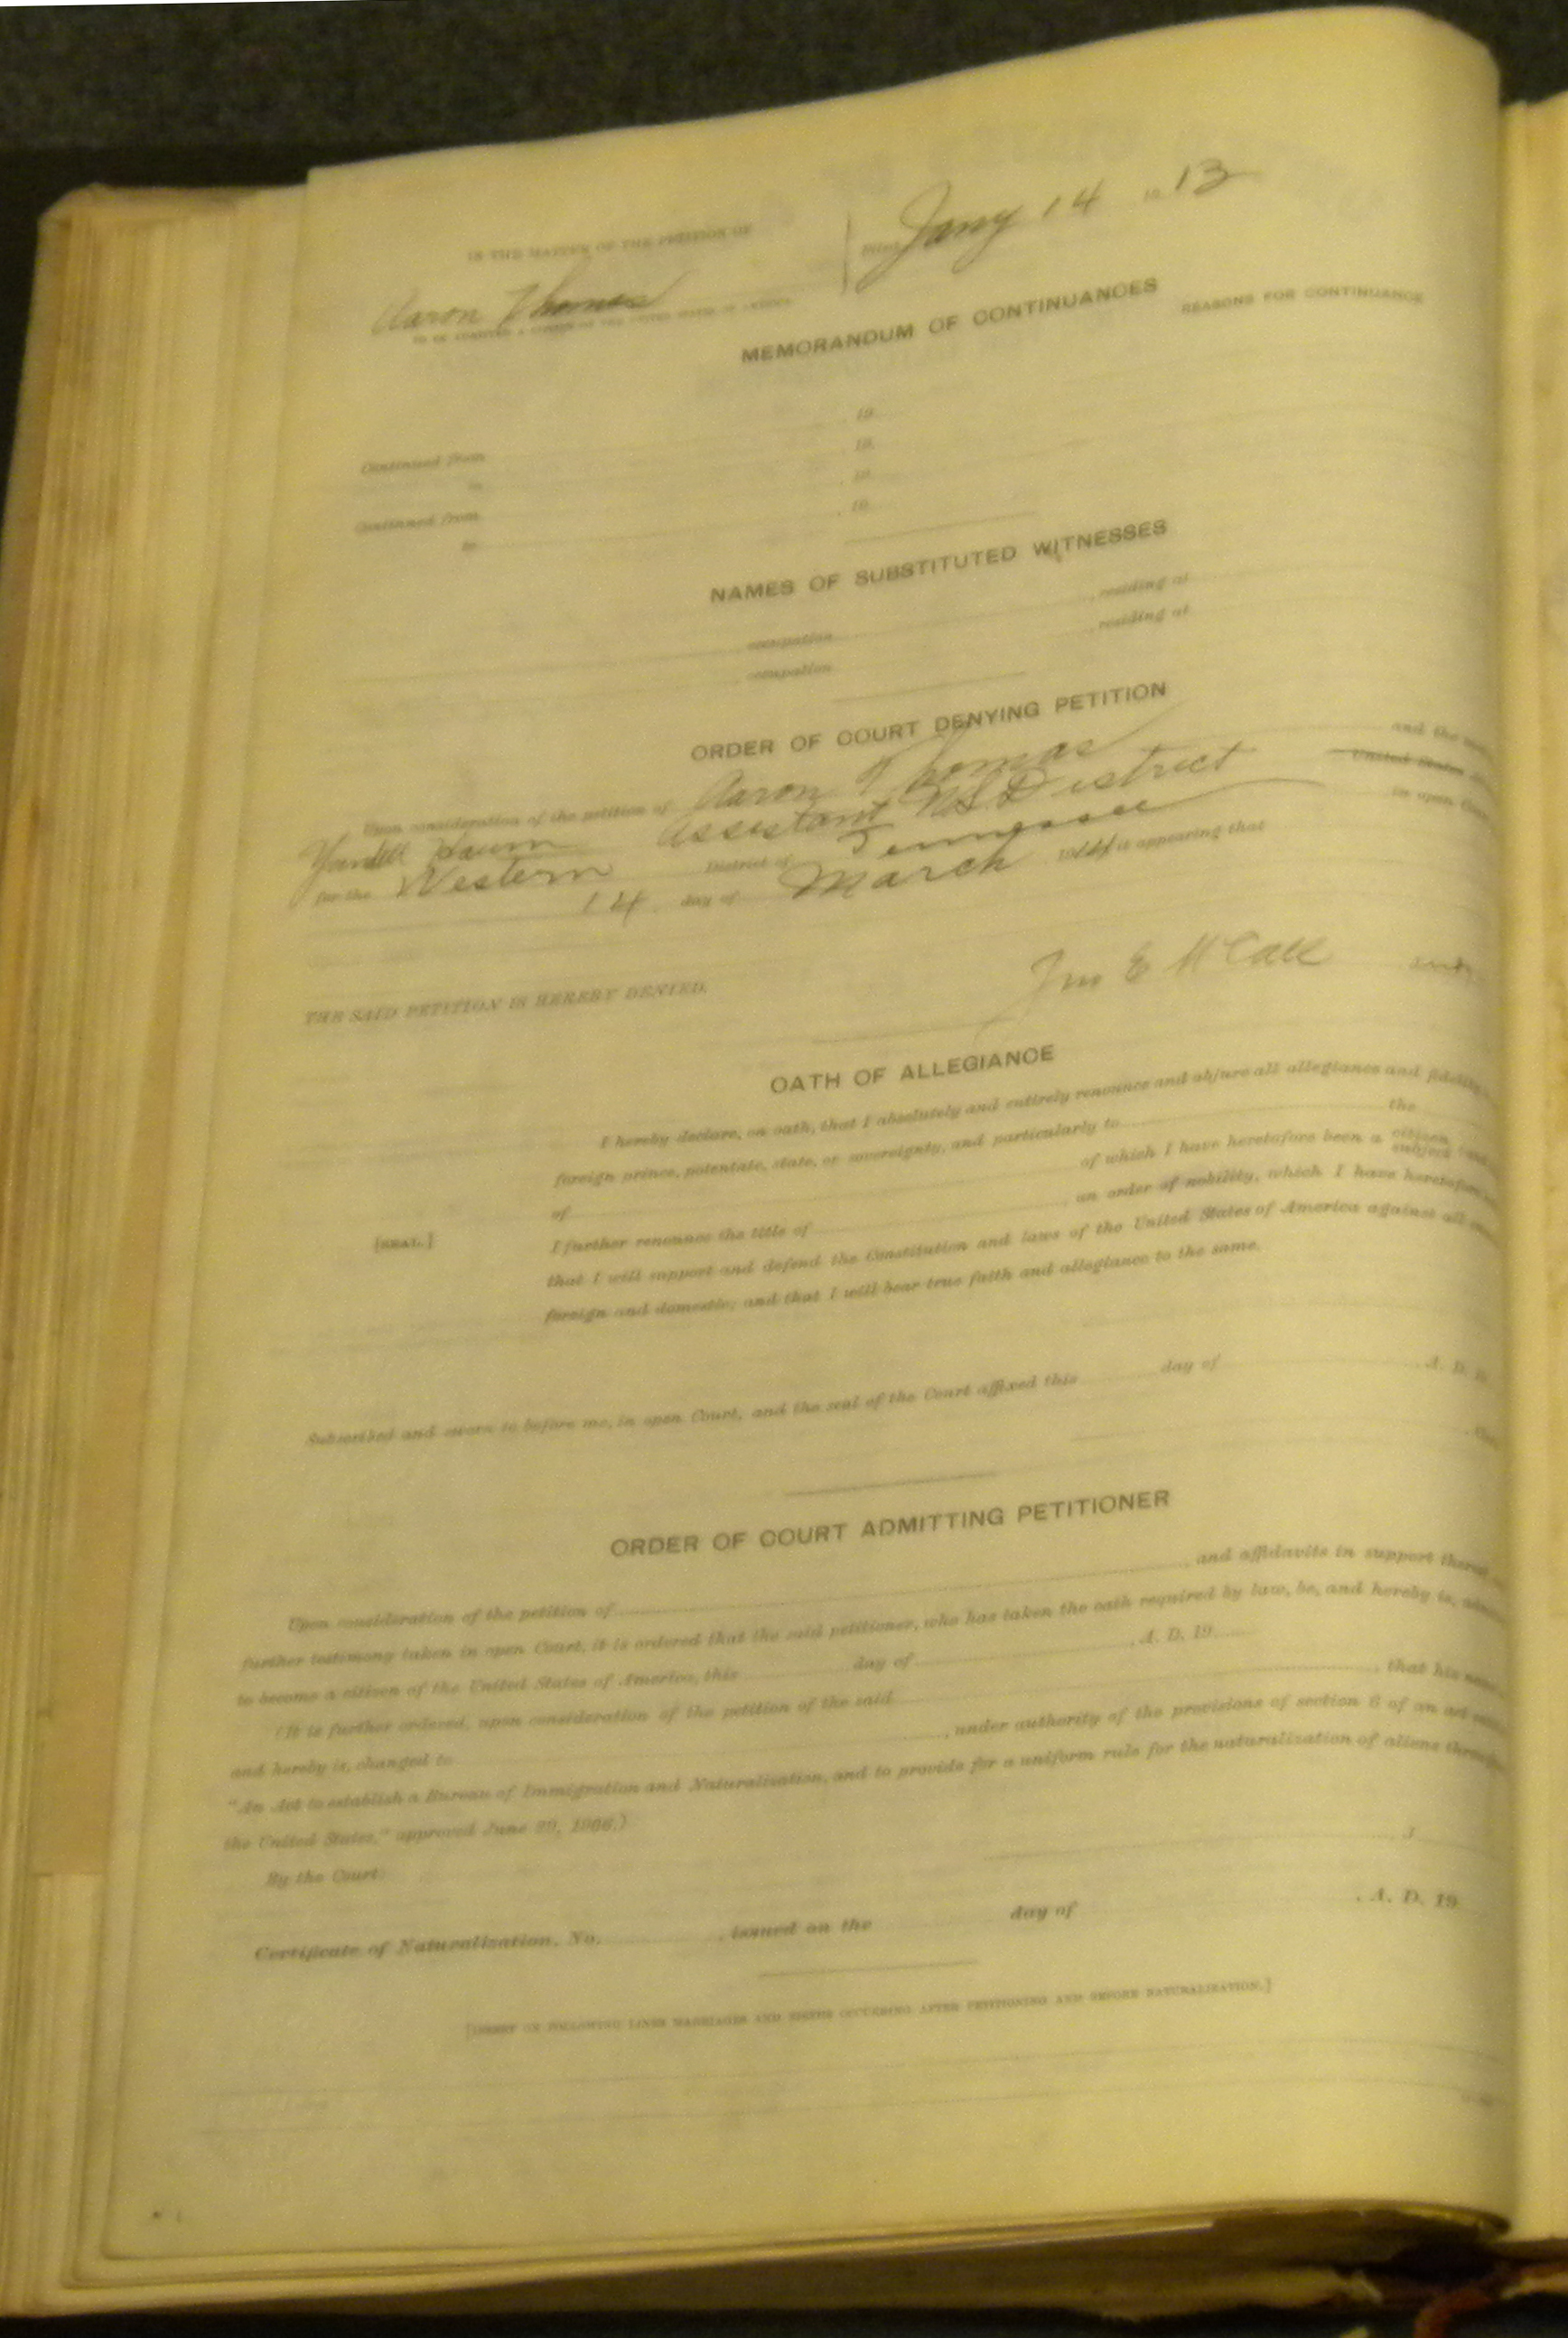 IN THE MATTER OF THE PETITION OF
Aaron Thomas
TO BE ADMITTED A CITIZEN OF THE UNITED STATES OF AMERICA
Filed Jany 14 19 13
MEMORANDUM OF CONTINUANCES
REASONS FOR CONTINUANCE
Continued from , 19
to , 19
Continued from , 19
to , 19
NAMES OF SUBSTITUTED WITNESSES
occupation , residing at
occupation , residing at
ORDER OF COURT DENYING PETITION
Upon consideration of the petition of Aaron Thomas and the
Assistant US District United States
for the Western District of Tennessee in open
14 day of March 1914, it appearing that
THE SAID PETITION IS HEREBY DENIED.
Jno E McCall
OATH OF ALLEGIANCE
I hereby declare, on oath, that I absolutely and entirely renounce and abjure all allegiance and fidelity
foreign prince, potentate, state, or sovereignty, and particularly to the
of of which I have heretofore been a citizen subject
[SEAL.]
I further renounce the title of , an order of nobility, which I have heretofore
that I will support and defend the Constitution and laws of the United States of America against all
foreign and domestic; and that I will bear true faith and allegiance to the same.
Subscribed and sworn to before me, in open Court, and the seal of the Court affixed this day of , A. D. 19
ORDER OF COURT ADMITTING PETITIONER
Upon consideration of the petition of , and affidavits in support thereof
further testimony taken in open Court, it is ordered that the said petitioner, who has taken the oath required by law, be, and hereby is,
to become a citizen of the United States of America, this day of , A. D. 19
(It is further ordered, upon consideration of the petition of the said , that his
and hereby is, changed to , under authority of the provisions of section 6 of an act
"An Act to establish a Bureau of Immigration and Naturalization, and to provide for a uniform rule for the naturalization of aliens
the United States," approved June 29, 1906.)
By the Court:
, J
Certificate of Naturalization, No. , issued on the day of , A. D. 19
[INSERT ON FOLLOWING LINES MARRIAGES AND BIRTHS OCCURRING AFTER PETITIONING AND BEFORE NATURALIZATION.]